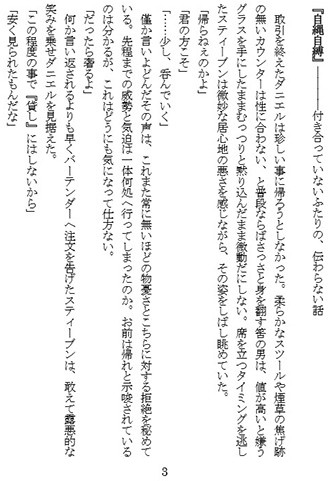 『自縄自縛』――――付き合っていないふたりの、伝わらない話
　取引を終えたダニエルは珍しい事に帰ろうとしなかった。柔らかなスツールや煙草の焦げ跡
の無いカウンターは性に合わない、と普段ならばさっさと身を翻す筈の男は、値が高いと嫌う
グラスを手にしたままむっつりと黙り込んだまま微動だにしない。席を立つタイミングを逃し
たスティーブンは微妙な居心地の悪さを感じながら、その姿をしばし眺めていた。
「帰らねぇのかよ」
「君の方こそ」
「……少し、呑んでいく」
　僅か言いよどんだその声は、これまた常に無いほどの物憂さとこちらに対する拒絶を秘めて
いる。先程までの威勢と気迫は一体何処へ行ってしまったのか。お前は帰れと示唆されている
のは分かるが、これはどうにも気になって仕方ない。
「だったら奢るよ」
　何か言い返されるよりも早くバーテンダーへ注文を告げたスティーブンは、敢えて露悪的な
笑みを乗せダニエルを見据えた。
「この程度の事で『貸し』にはしないから」
「安く見られたもんだな」
3